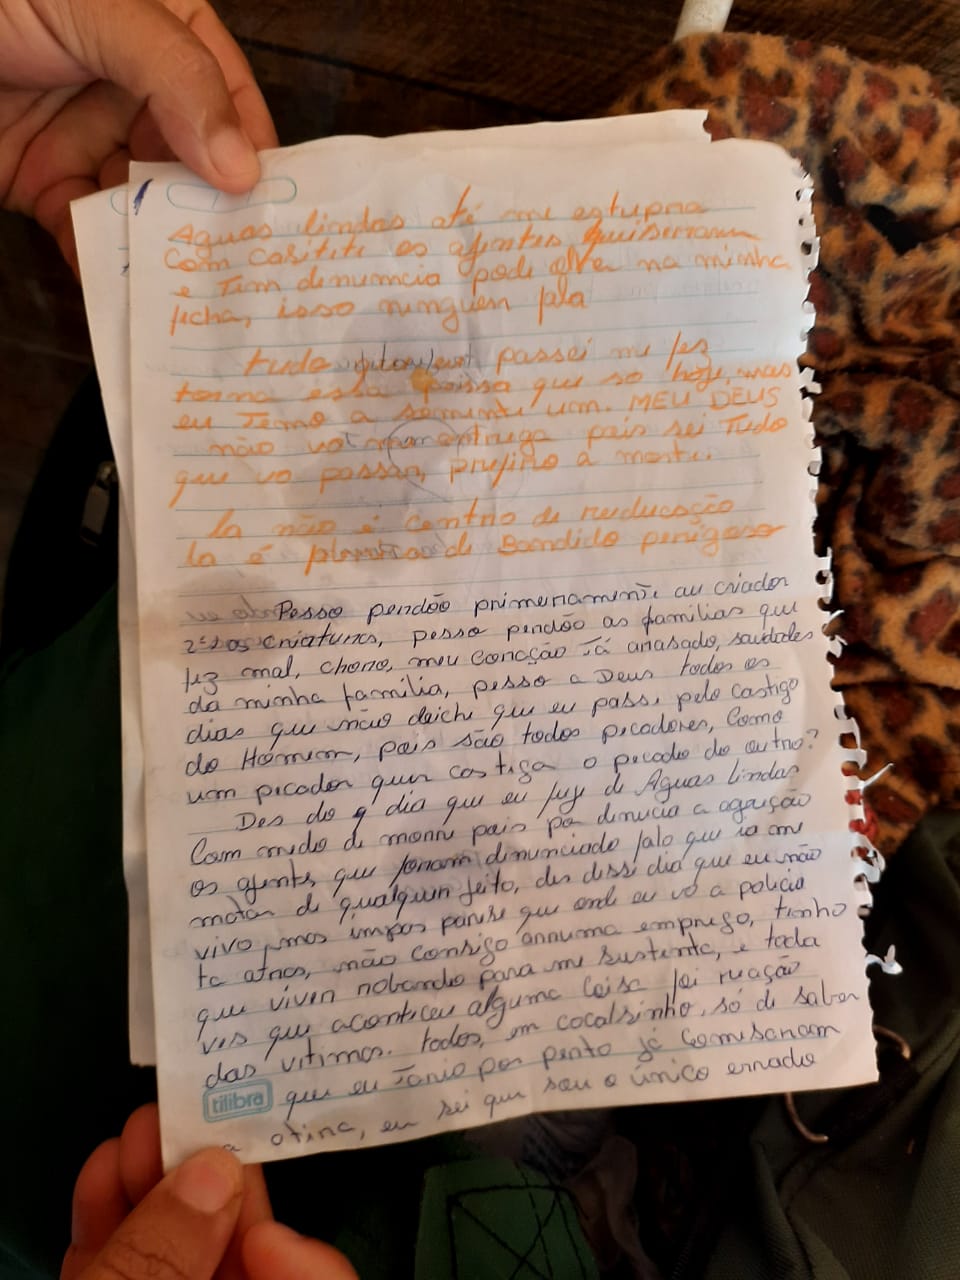 Aguas lindas até me estupra
com casitite os agentes quiserram
e Tem dinuncia pode olha na minha
ficha, isso ninguem fala
tudo passei me fez
torna essa que so hoje, mas
eu Temo a somente um. MEU DEUS
não vo mim entrega pois sei Tudo
que vo passar, prefiro a morte.
la não é centrio de reeducação
la é de Bandido perigoso
Pesso perdão primeiramente au criador
2º as criaturas, pesso perdão as familias que
fiz mal, choro, meu coração tá arrasado, saudades
da minha familia, pesso a Deus todos os
dias que não deiche que eu passe pelo castigo
do Homem, pois são todos pecadores, Como
um pecador quer castiga o pecado do outro?
Des do 9 dia que eu fuji de Aguas lindas
Com medo de morre pois pa dinucia a agrição
os ajente, que foram dinunciado falo que ia me
matar de qualquer jeito, des dissi dia que eu não
vivo, mas
impos parese que onde eu vô a policia
ta atras, não Consigo arruma emprego, tenho
que viver robando para me sustenta, e toda
ves que aconticeu alguma Coisa foi reação
das vitimas. todos, em cocalzinho, só de saber
que eu Tario por perto já Comesaram
a otina, eu sei que sou o único errado
tilibra